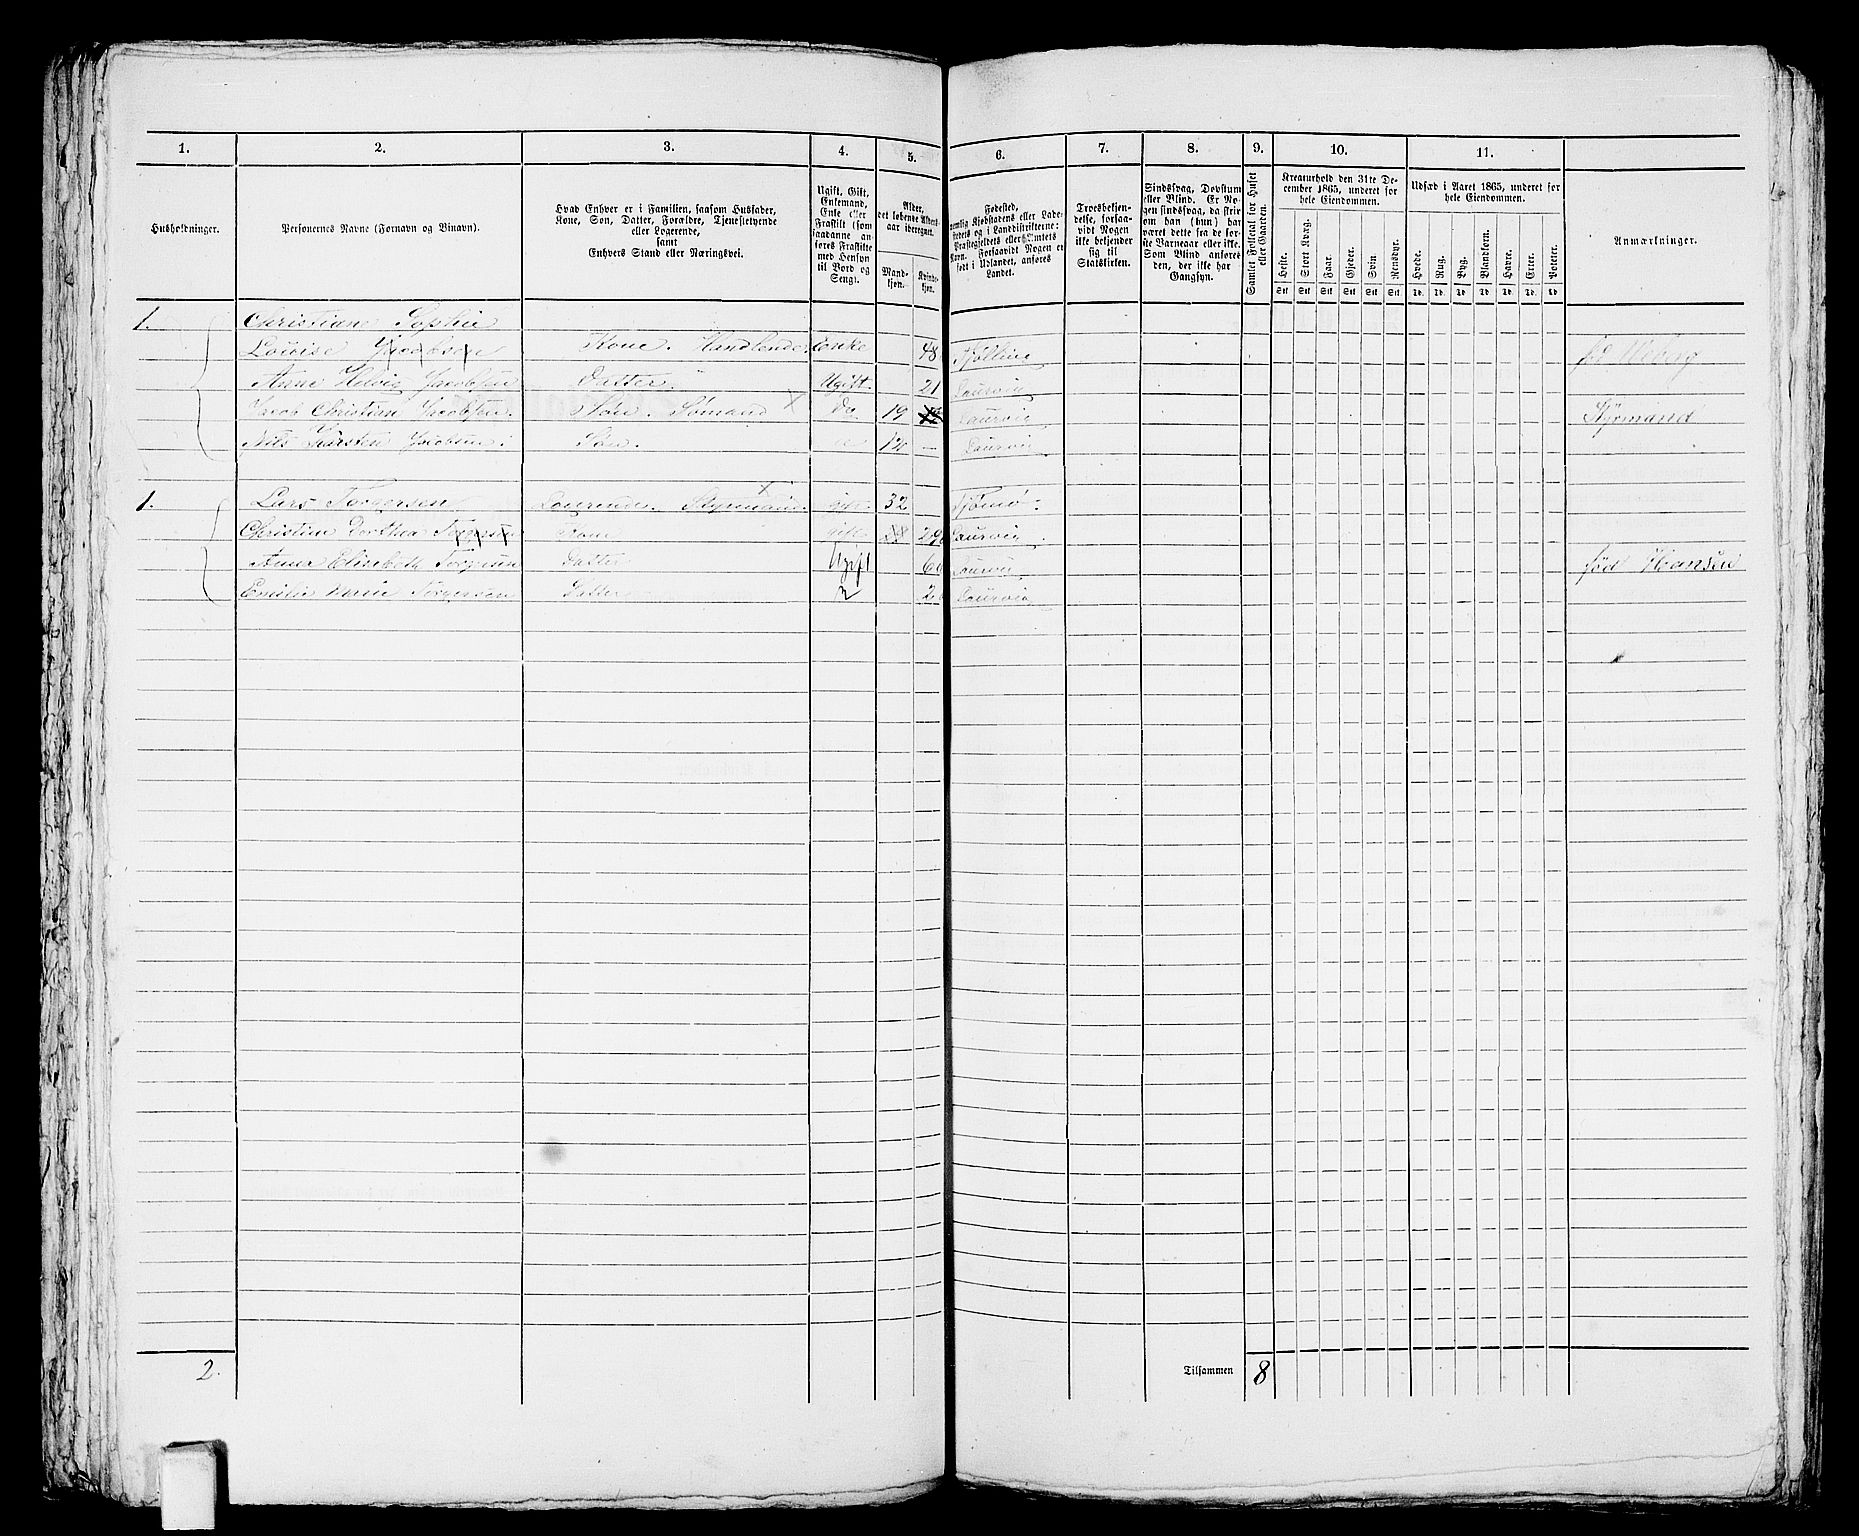 1. 2. 3. 4. 5. 6. 7. 8. 9. 10. 11.
Husholdninger.
Personernes Navne (Fornavn og Binavn).
Hvad Enhver er i Familien, saasom Husfader,
Kone, Søn, Datter, Forældre, Tjenestetyende
eller Logerende,
samt
Enhvers Stand eller Næringsvei.
Ugift, Gift,
Enkemand,
Enke eller
Fraskilt (som
saadanne an-
føres Fraskilte
med Hensyn
til Bord og
Seng).
Alder,
det løbende Alders-
aar iberegnet.
Mand-
kjøn.
Kvinde-
kjøn.
Fødested,
nemlig Kjøbstadens eller Lade-
stedets og i Landdistrikterne:
Præstegjeldets eller Amtets
Navn. Forsaavidt Nogen er
født i Udlandet, anføres
Landet.
Troesbekjen-
delse, forsaa-
vidt Nogen
ikke bekjender
sig til
Statskirken.
Sindssvag, Døvstum
eller Blind. Er No-
gen sindssvag, da skrives
om han (hun) har
været dette fra de før-
ste Barneaar eller ikke.
Som Blind anføres
den, der ikke har
Gangsyn.
Samlet Folketal for Huset
eller Gaarden.
Kreaturhold den 31te De-
cember 1865, underet for
hele Eiendommen.
Heste. Stort Kvæg. Faar. Gjeder. Svin. Rensdyr.
Stk Stk Stk Stk Stk Stk
Udsæd i Aaret 1865, underet for
hele Eiendommen.
Hvede. Rug. Byg. Blandkorn. Havre. Erter. Poteter.
Td. Td. Td. Td. Td. Td. Td
Anmærkninger.
1. Christiane Sophie
Lovise Jacobsen Kone. Handlende. Enke 48 Tjølling fd Wiberg
Anne Hdvig Jacobsen Datter " Ugift. 21 Laurvig
Jacob Christian Jacobsen. Søn. Sømand X do 19 Laurvig Styrmand
Nils Karsten Jacobsen. Søn. 12 — Laurvig
1. Lars Torgersen Logerende. Styrmand. X gift 32 Tjømø.
Christine Dorthea Torgersen Kone gift 29 Laurvig
Anna Elisabeth Torgersen Datter Ugift 6 Laurvig fød Hansen
Emilie Marie Torgersen Datter 2 Laurvig
2. Tilsammen 8